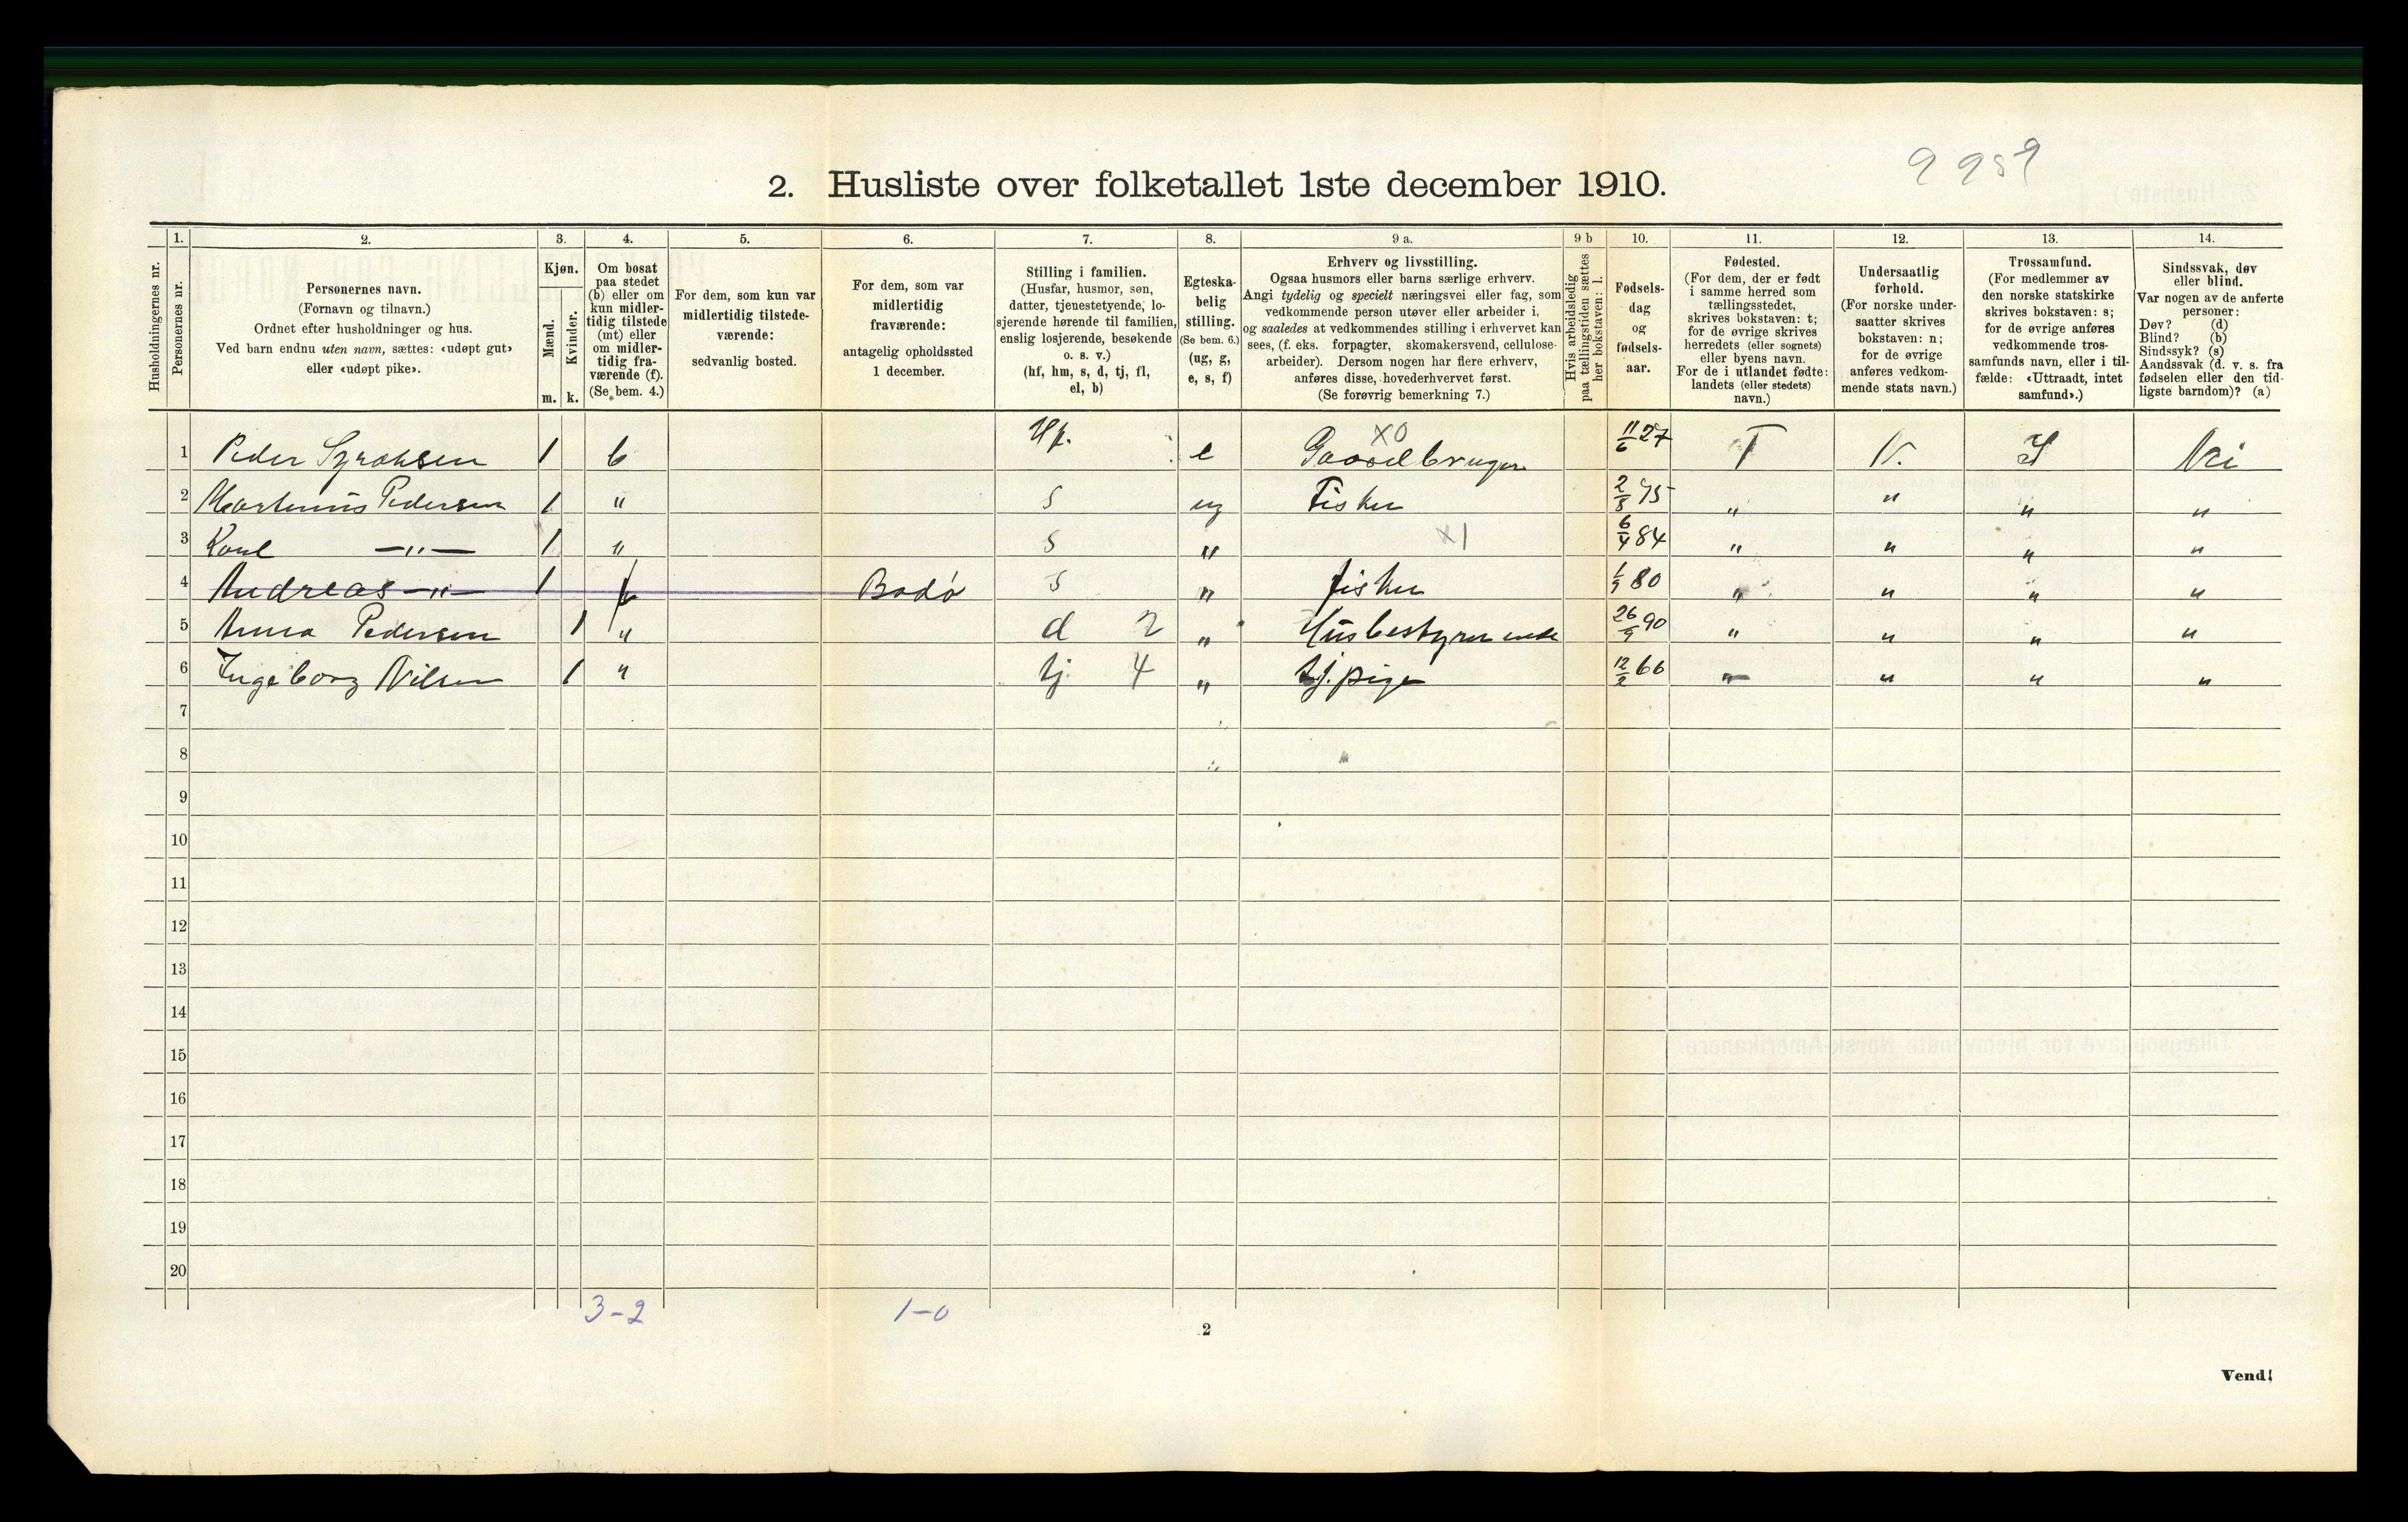 9 9 5 9
2. Husliste over folketallet 1ste december 1910.
Husholdningernes nr.
1. Personernes nr.
2.
Personernes navn.
(Fornavn og tilnavn.)
Ordnet efter husholdninger og hus.
Ved barn endnu uten navn, sættes: «udøpt gut»
eller «udøpt pike».
3.
Kjøn.
Mænd. Kvinder.
m. k.
4.
Om bosat
paa stedet
(b) eller om
kun midler-
tidig tilstede
(mt) eller
om midler-
tidig fra-
værende (f).
(Se bem. 4.)
5.
For dem, som kun var
midlertidig tilstede-
værende:
sedvanlig bosted.
6.
For dem, som var
midlertidig
fraværende:
antagelig opholdssted
1 december.
7.
Stilling i familien.
(Husfar, husmor, søn,
datter, tjenestetyende, lo-
sjerende hørende til familien,
enslig losjerende, besøkende
o. s. v.)
(hf, hm, s, d, tj, fl,
el, b)
8.
Egteska-
belig
stilling.
(Se bem. 6.)
(ug, g,
e, s, f)
9 a.
Erhverv og livsstilling.
Ogsaa husmors eller barns særlige erhverv.
Angi tydelig og specielt næringsvei eller fag, som
vedkommende person utøver eller arbeider i,
og saaledes at vedkommendes stilling i erhvervet kan
sees, (f. eks. forpagter, skomakersvend, cellulose-
arbeider). Dersom nogen har flere erhverv,
anføres disse, hovederhvervet først.
(Se forøvrig bemerkning 7.)
9 b
Hvis arbeidsledig
paa tællingstiden sættes
her bokstaven: l.
10.
Fødsels-
dag
og
fødsels-
aar.
11.
Fødested.
(For dem, der er født
i samme herred som
tællingsstedet,
skrives bokstaven: t;
for de øvrige skrives
herredets (eller sognets)
eller byens navn.
For de i utlandet fødte:
landets (eller stedets)
navn.)
12.
Undersaatlig
forhold.
(For norske under-
saatter skrives
bokstaven: n;
for de øvrige
anføres vedkom-
mende stats navn.)
13.
Trossamfund.
(For medlemmer av
den norske statskirke
skrives bokstaven: s;
for de øvrige anføres
vedkommende tros-
samfunds navn, eller i til-
fælde: «Uttraadt, intet
samfund».)
14.
Sindssvak, døv
eller blind.
Var nogen av de anførte
personer:
Døv? (d)
Blind? (b)
Sindssyk? (s)
Aandssvak (d. v. s. fra
fødselen eller den tid-
ligste barndom)? (a)
1 Peder Syraksen 1 b Hf. e X0 Gaardbruger 11/6 27 T N. S Nei
2 Martinus Pedersen 1 " s ug Fisker 2/8 75 " " " "
3 Karl —"— 1 " s " X1 6/4 84 " " " "
4 Andreas —"— 1 f Bodö s " fisker 1/9 80 " " " "
5 Anna Pedersen 1 " d 2 " Husbestyrerinde 26/9 90 " " " "
6 Ingeborg Nilsen 1 " tj. 4 " tj. pige 12/2 66 " " " "
7
8
9
10
11
12
13
14
15
16
17
18
19
20
3-2 1-0
2
Vend!